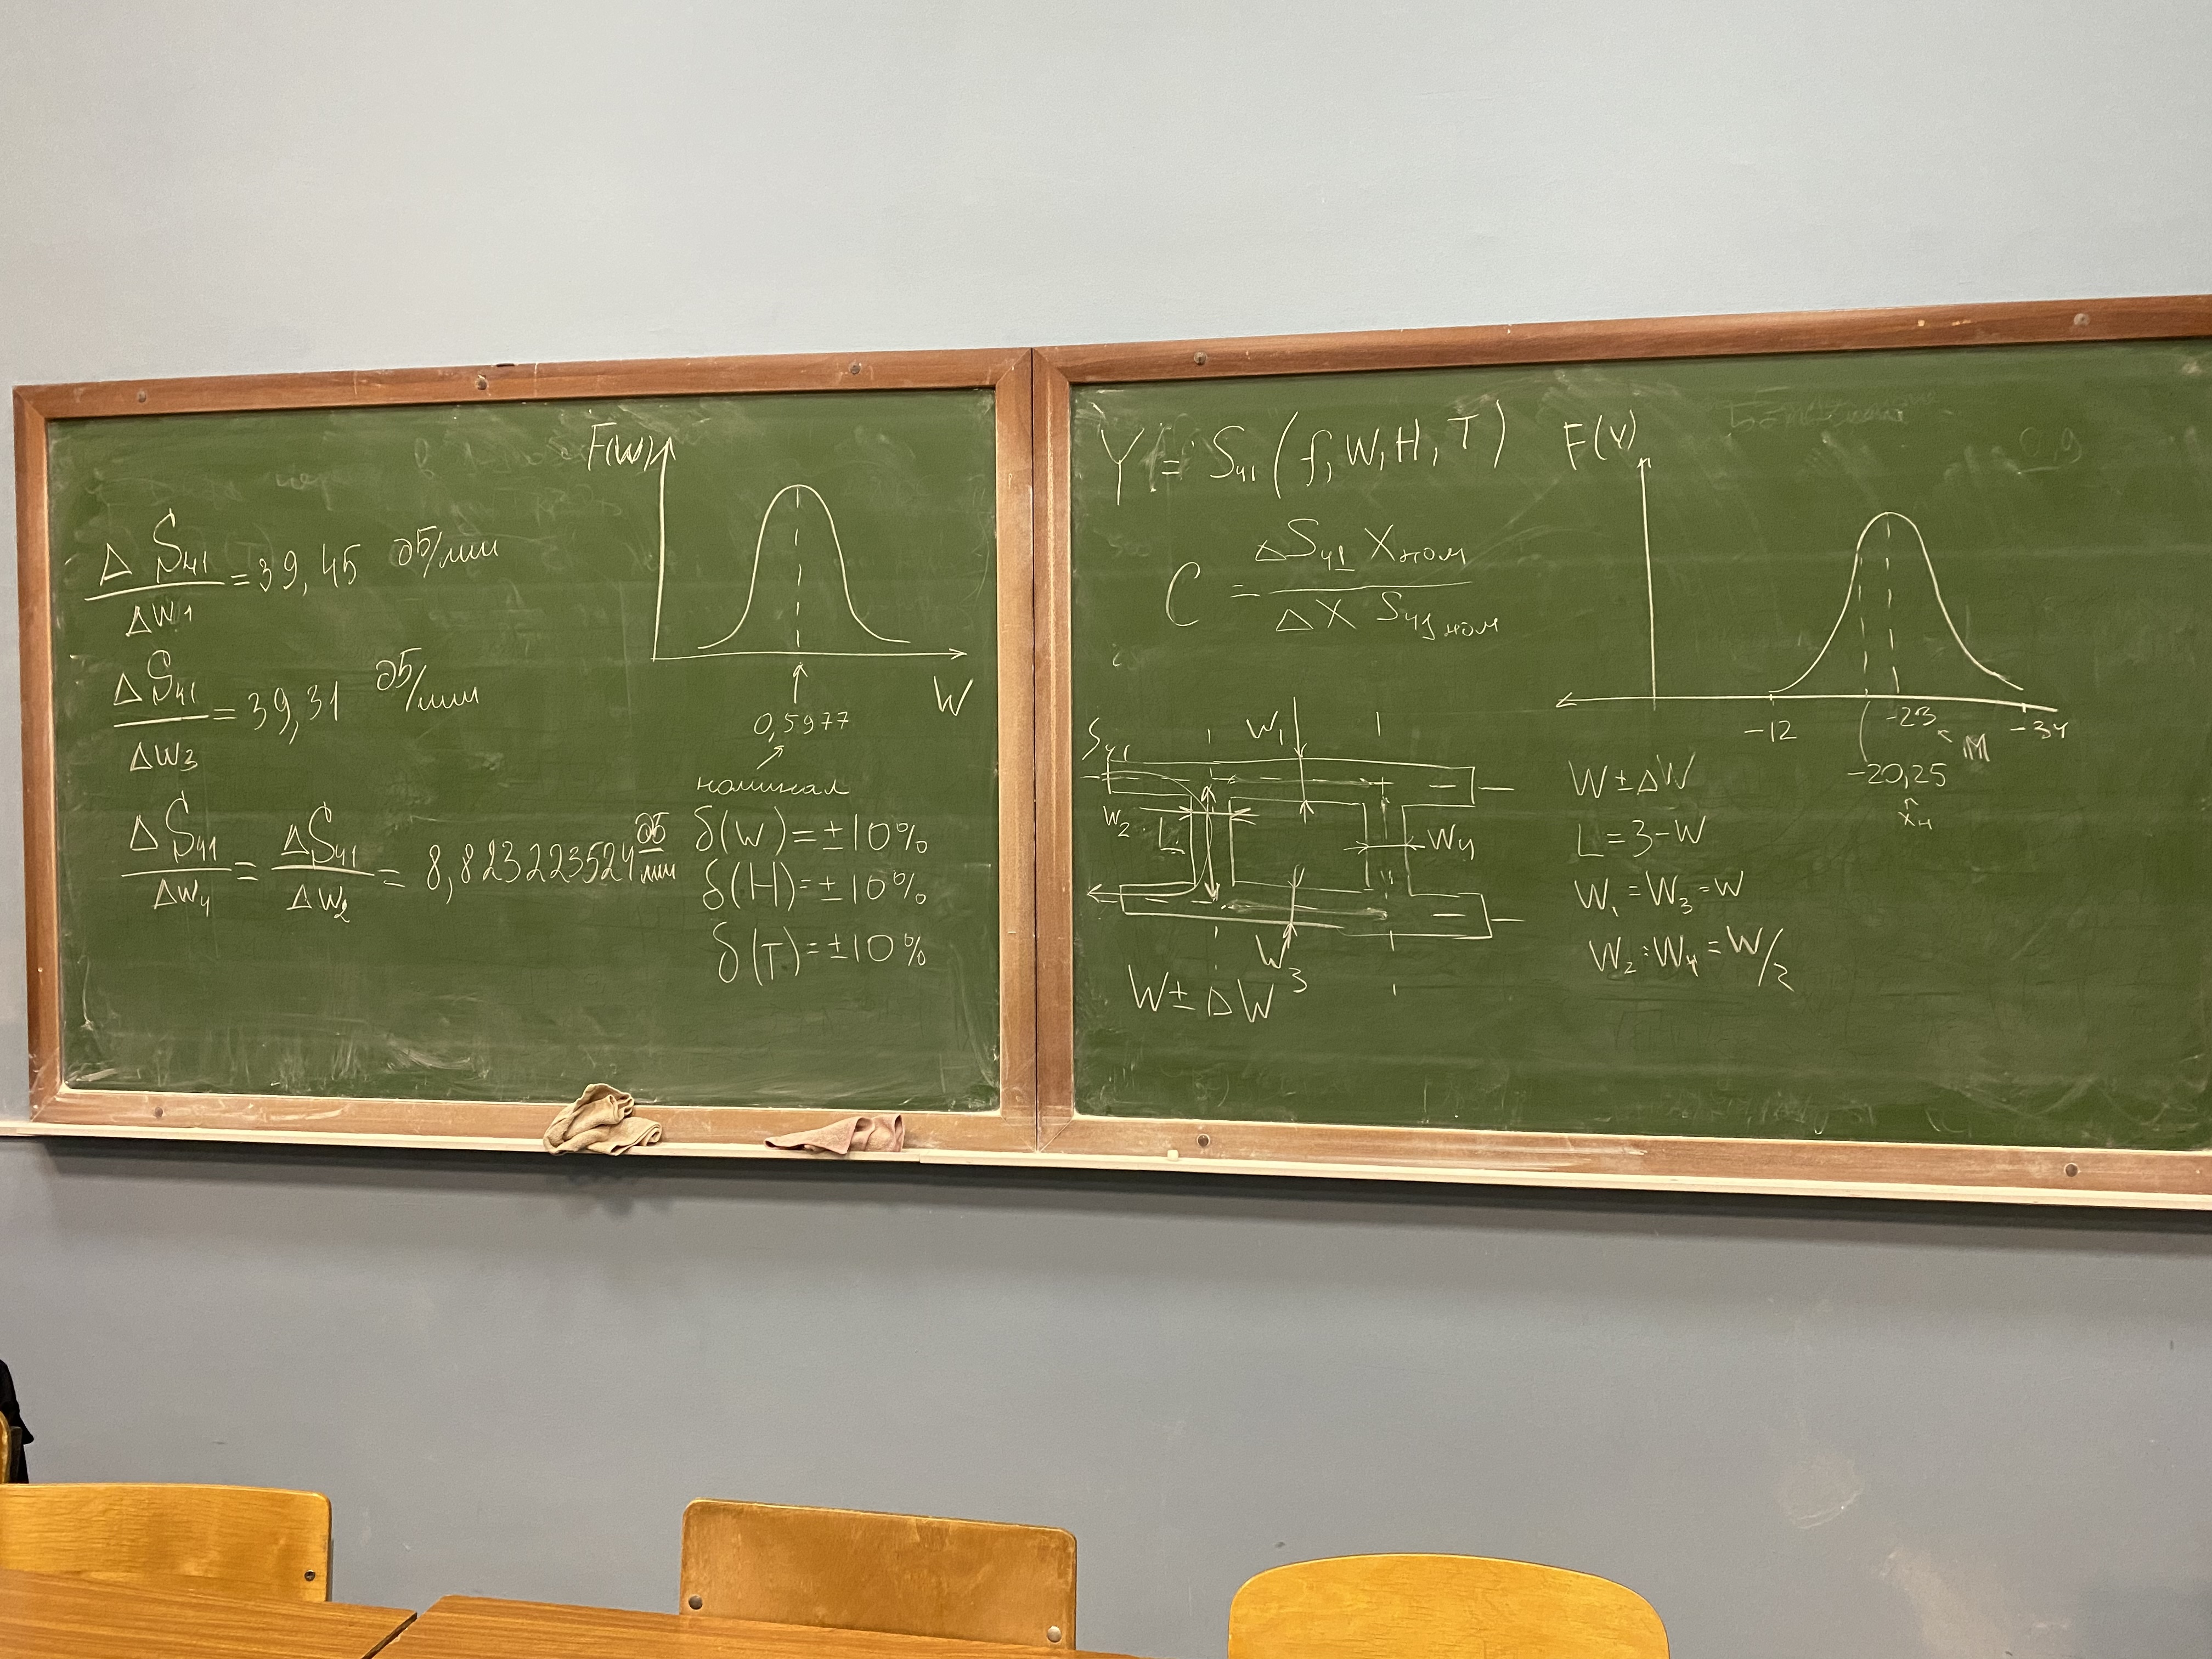 ΔS₄₁/ΔW₁ = 39,45 дБ/мм
ΔS₄₁/ΔW₃ = 39,31 дБ/мм
ΔS₄₁/ΔW₄ = ΔS₄₁/ΔW₂ = 8,823223524 дБ/мм
F(W)
W
0,5977
номинал
δ(W)=±10%
δ(H)=±10%
δ(T)=±10%
Y = S₄₁(f,W,H,T)
C = ΔS₄₁ Xном / ΔX S₄₁ном
S₄₁
W₁
W₂
L
W₄
W₃
W±ΔW
F(Y)
-12
-23
M
-34
-20,25
xн
W±ΔW
L=3-W
W₁=W₃=W
W₂=W₄=W/2